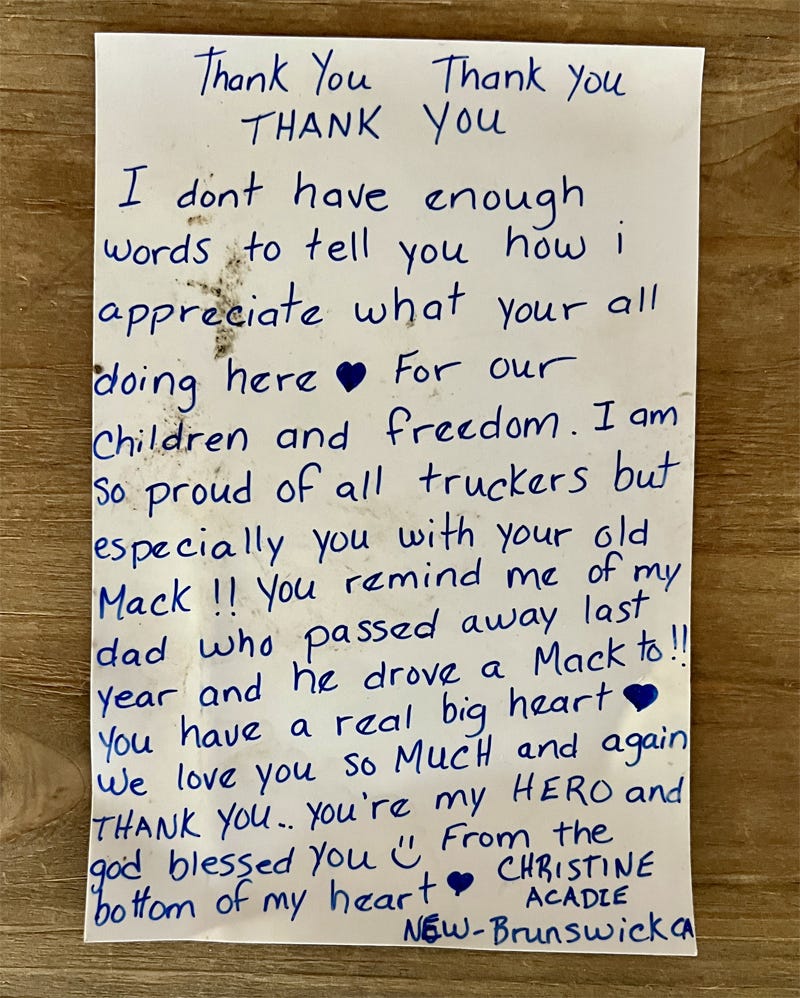 Thank You Thank you
THANK YOU
I dont have enough
words to tell you how i
appreciate what your all
doing here ♥ For our
Children and freedom. I am
So proud of all truckers but
especially you with your old
Mack !! You remind me of my
dad who passed away last
year and he drove a Mack to !!
You have a real big heart ♥
We love you so MUCH and again
THANK YOU.. you're my HERO and
god blessed you ☺ From the
bottom of my heart ♥ CHRISTINE
ACADIE
NEW-Brunswick CA